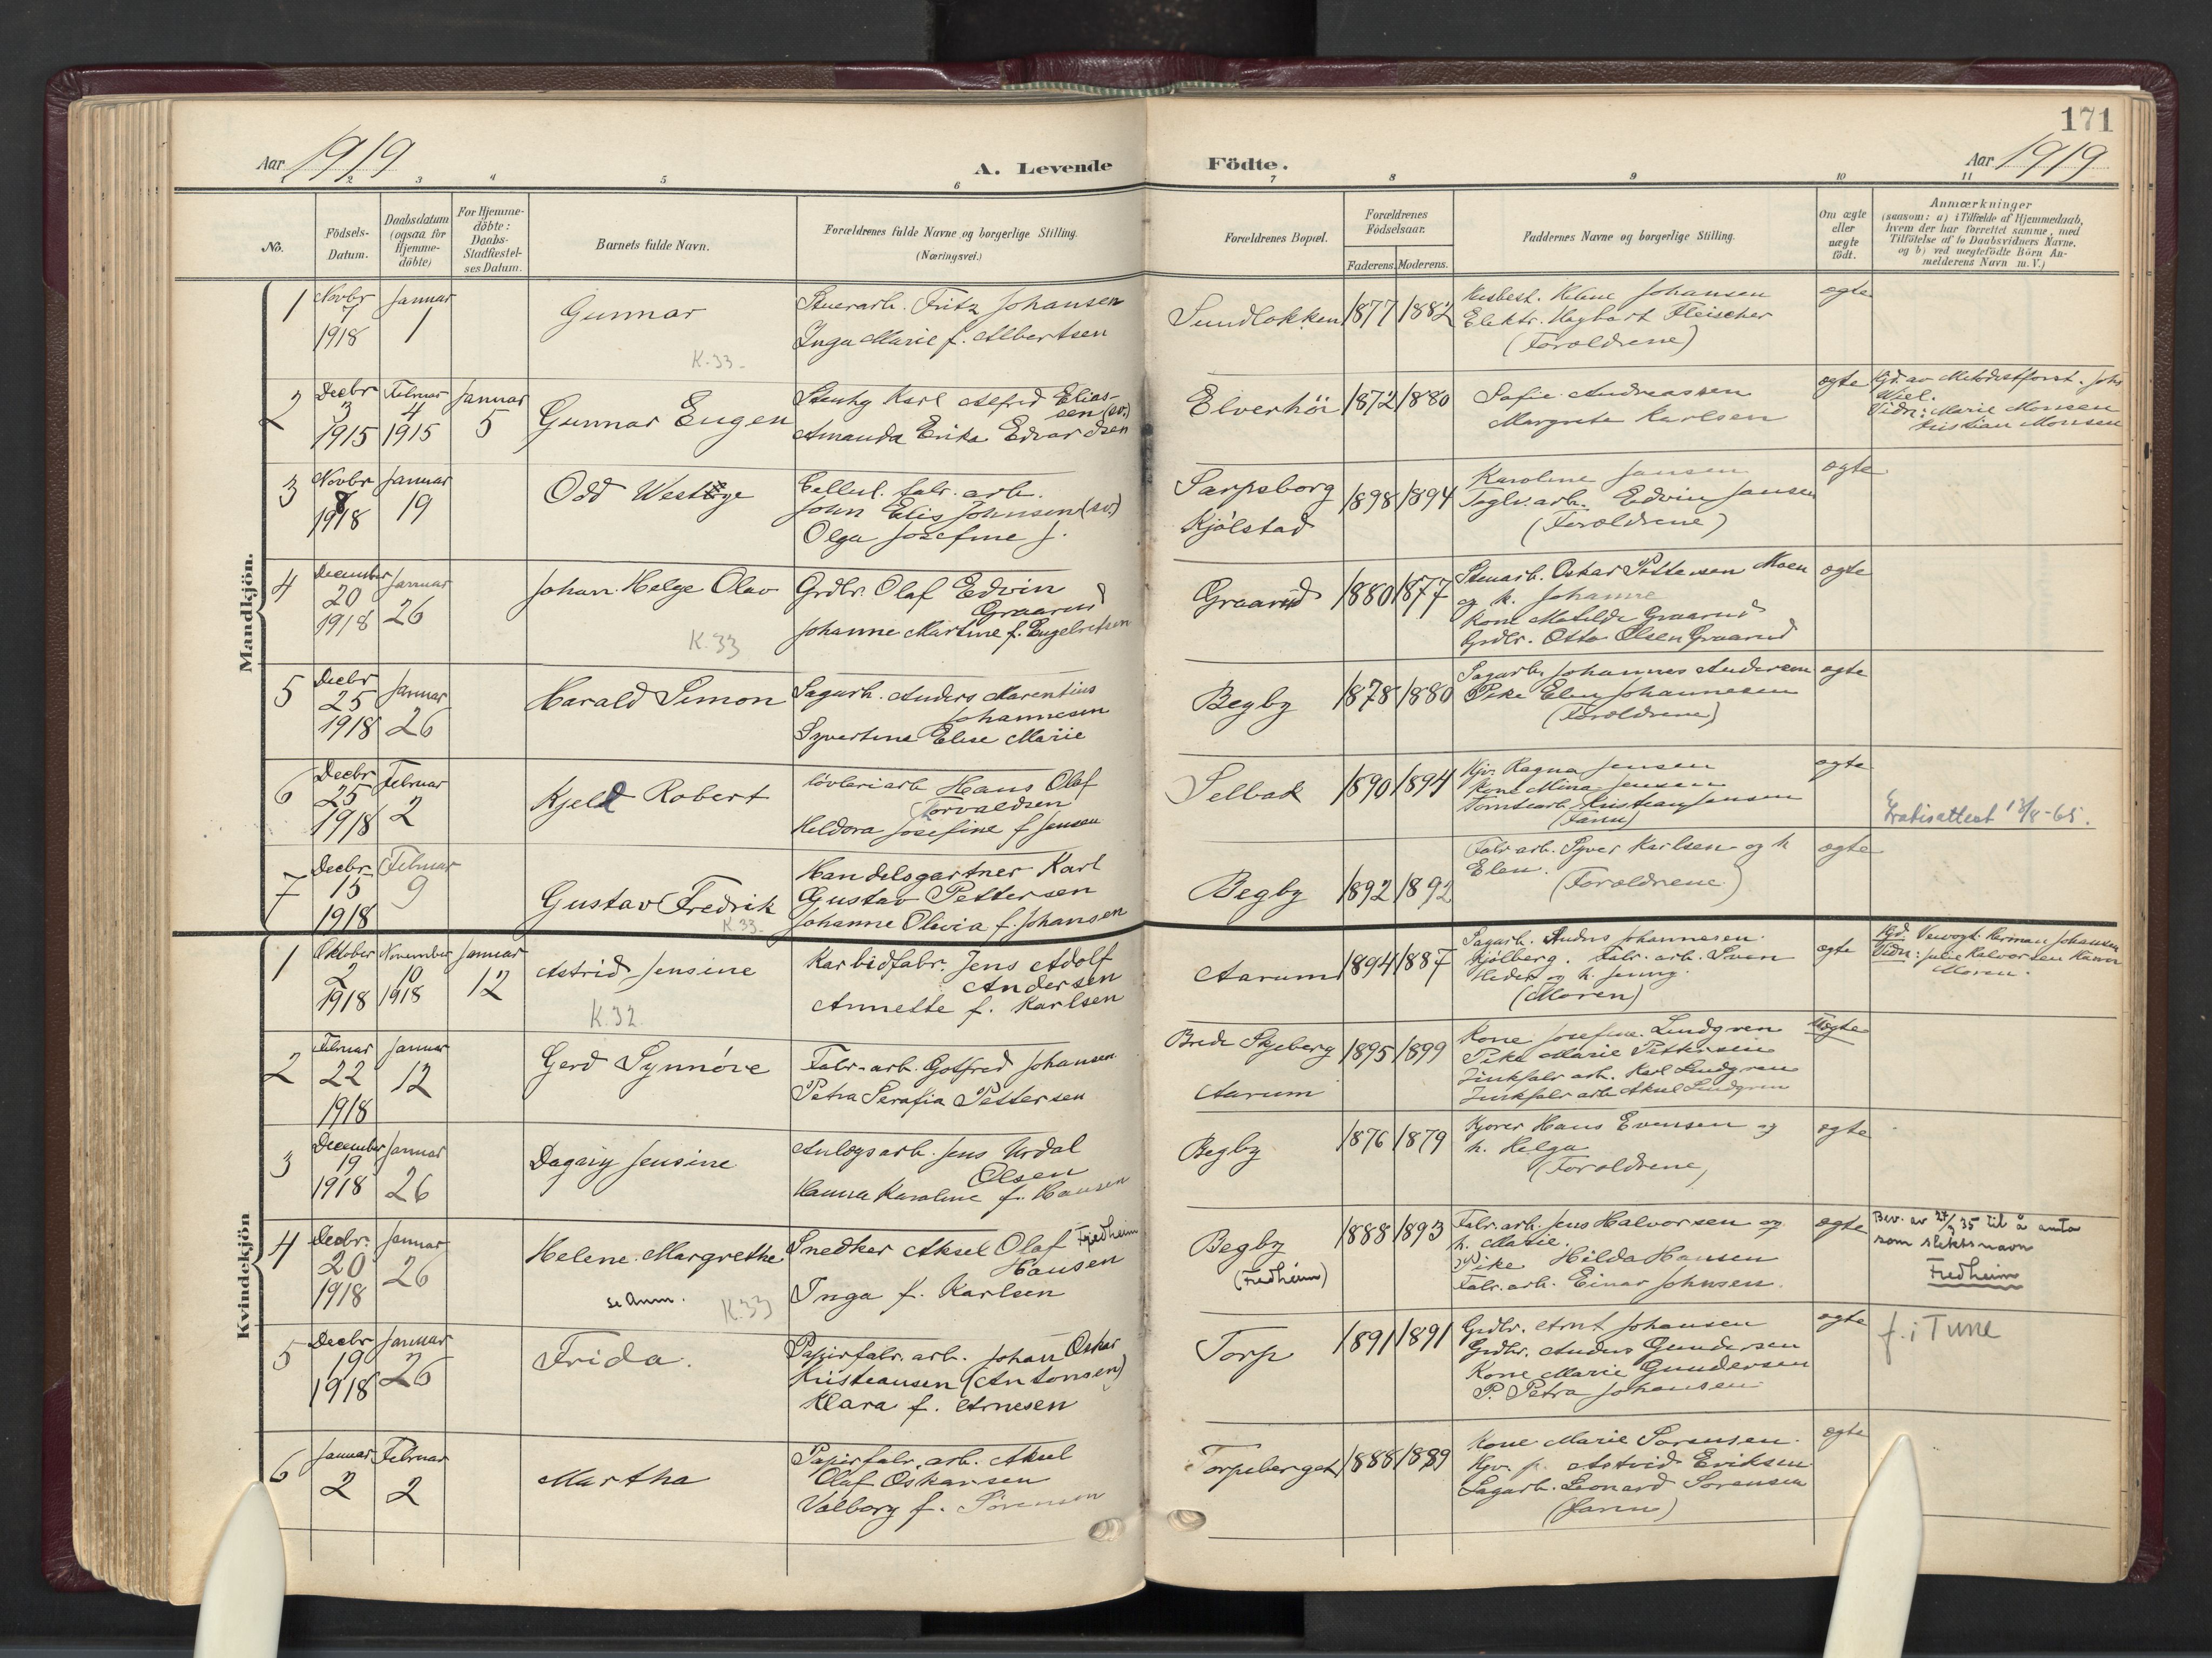 171
Aar 1919
A. Levende Födte.
Aar 1919
1 2 3 4 5 6 7 8 9 10 11
No.
Födsels-
Datum.
Daabsdatum
(ogsaa for
Hjemme-
döbte)
For Hjemme-
döbte:
Daabs-
Stadfæstel-
ses Datum.
Barnets fulde Navn.
Forældrenes fulde Navne og borgerlige Stilling.
(Næringsvei.)
Forældrenes Bopæl.
Forældrenes
Födselsaar.
Faderens. Moderens.
Faddernes Navne og borgerlige Stilling.
Om ægte
eller
uægte
födt.
Anmærkninger
(saasom: a) i Tilfælde af Hjemmedaab,
hvem der har forrettet samme, med
Tilföielse af to Daabsvidners Navne,
og b) ved uægtefödte Börn An-
melderens Navn m. V.)
Mandkjön.
1
Novbr
7
1918
Januar
1
Gunnar
K.33
Stuerarb. Fritz Johansen
Inga Marie f. Albertsen
Sundløkken
1877 1882
Husbest. Helene Johansen
Elektr. Hagbart Fleischer
(Foroldrene)
ægte
2
Decbr
3
1915
Februar
4
1915
Januar
5
Gunnar Eugen
Stenhg Karl Alfred Elias-
sen (sv.)
Amanda Erika Edvardsen
Elverhöi
1872 1880
Sofie Andreassen
Margrete Karlsen
ægte
Hjd. av Metodistforst. Johs
Wiel.
Vidn: Marie Monsen
Kristian Monsen
3
Novbr
8
1918
Januar
19
Odd Westøge
Cellul. fabr. arb.
John Elis Johnsen (sv.)
Olga Josefine J.
Sarpsborg
Kjölstad
1898 1894
Karoline Jansen
Teglv. arb. Edvin Jansen
(Foroldrene)
ægte
4
December
20
1918
Januar
26
Johan Helge Olav
K.33
Grdbr. Olaf Edvin
Graarud
Johanne Martine f. Engebretsen
Graarud
1880 1877
Stenarb. Oskar Pettersen Moen
og h. Johanne
Kone Matilde Graarud
Grdbr. Otto Olsen Graarud
ægte
5
Decbr
25
1918
Januar
26
Harald Simon
Sagarb. Anders Marentius
Johannesen
Syvertine Elise Marie
Begby
1878 1880
Sagarb. Johannes Andersen
Pike Elen Johannesen
(Foroldrene)
ægte
6
Decbr
25
1918
Februar
2
Kjeld Robert
Høvleriarb Hans Olaf
Torvaldsen
Heldora Josefine f Jensen
Selbak
1890 1894
Hjv. Ragna Jensen
Kone Mina Jensen
Tomtearb. Kristian Jensen
(Faren)
ægte
Gratisattest 12/8-65.
7
Decbr
15
1918
Februar
9
Gustav Fredrik
K.33
Handelsgartner Karl
Gustav Pettersen
Johanne Olivia f. Johansen
Begby
1892 1892
Fabr. arb. Syver Karlsen og h
Elen.
(Foroldrene)
ægte
Kvindekjön
1
Oktober
2
1918
November
10
1918
Januar
12
Astrid Jensine
K.32
Karbidfabr. Jens Adolf
Andersen
Annette f. Karlsen
Aarum
1894 1887
Sagarb. Anders Johannesen
Kjølberg. Fabr. arb. Sven
Heder og h. Jenny.
(Moren)
ægte
Hjd. Veivogt. Herman Johansen
Vidn: Julie Halvorsen
Moren.
2
Februar
22
1918
Januar
12
Gerd Synnöve
Fabr. arb. Gotfred Johansen
Petra Serafia Pettersen
Brede Skjeberg
Aarum
1895 1899
Kone Josefine Lindgren
Pike Marie Pettersen
Zinkfabr arb. Karl Lindgren
Zinkfabr arb Aksel Lindgren
Uægte
3
December
19
1918
Januar
26
Dagny Jensine
Anlægsarb. Jens Urdal
Olsen
Hanna Karoline f. Hansen
Begby
1876 1879
Kjører Hans Evensen og
h. Helga
(Foroldrene)
ægte
4
Decbr.
20
1918
Januar
26
Helene Margrethe
se Anm. K.33
Snedker Aksel Olaf Fredheim
Hansen
Inga f. Karlsen
Begby
(Fredheim)
1888 1893
Fabr. arb. Jens Halvorsen og
h. Marie.
Pike Hilda Hansen
Fabr. arb. Einar Johnsen.
ægte
Bev. av 27/2 35 til å anta
som slektsnavn
Fredheim
5
Decbr
19
1918
Januar
26
Frida.
Papirfabr. arb. Johan Oskar
Kristiansen (Antonsen)
Klara f. Arnesen
Torp
1891 1891
Grdbr. Arnt Johansen
Grdbr. Anders Gundersen
Kone Marie Gundersen
P. Petra Johansen
ægte
f. i Tune
6
Januar
2
Februar
2
Martha
Papirfabr. arb. Aksel
Olaf Oskarsen
Valborg f. Sørensen
Torpeberget
1888 1889
Kone Marie Sørensen.
Hjv. p. Astrid Eriksen
Sagarb. Leonard Sørensen
(Faren)
ægte